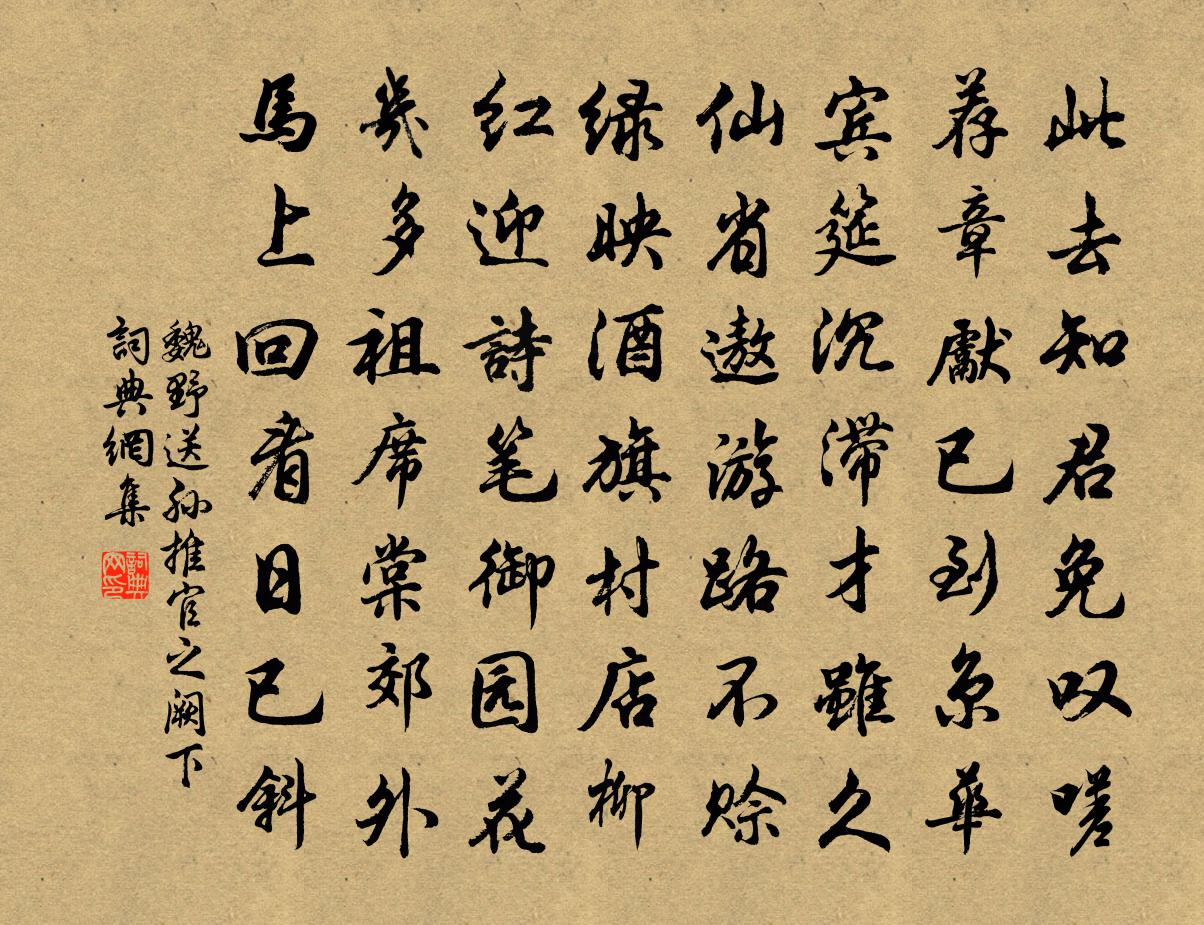 此去知君免叹嗟
荐章獻已到京華
宾筵沉滞才雖久
仙省遨游路不赊
绿映酒旗村店柳
红迎詩笔御园花
幾多祖席棠郊外
馬上回看日已斜
魏野送孙推官之阙下
詞典網集
詞典网印